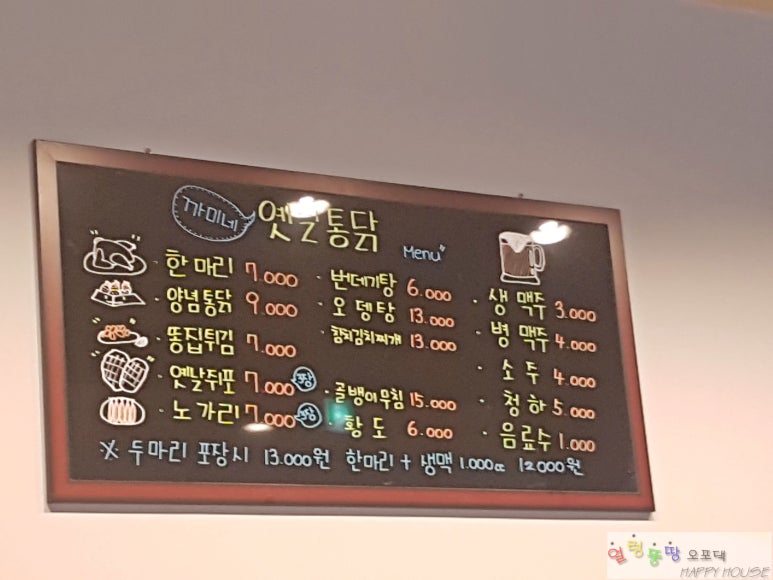 까미네 옛날통닭
Menu
한마리 7.000
양념통닭 9.000
똥집튀김 7.000
옛날쥐포 7.000 짱
노가리 7.000 짱
번데기탕 6.000
오뎅탕 13.000
참치김치찌개 13.000
골뱅이무침 15.000
황도 6.000
생맥주 3.000
병맥주 4.000
소주 4.000
청하 5.000
음료수 1.000
※ 두마리 포장시 13.000원 한마리 + 생맥 1.000cc 12000원
열렁뚱땅 오포댁
HAPPY HOUSE